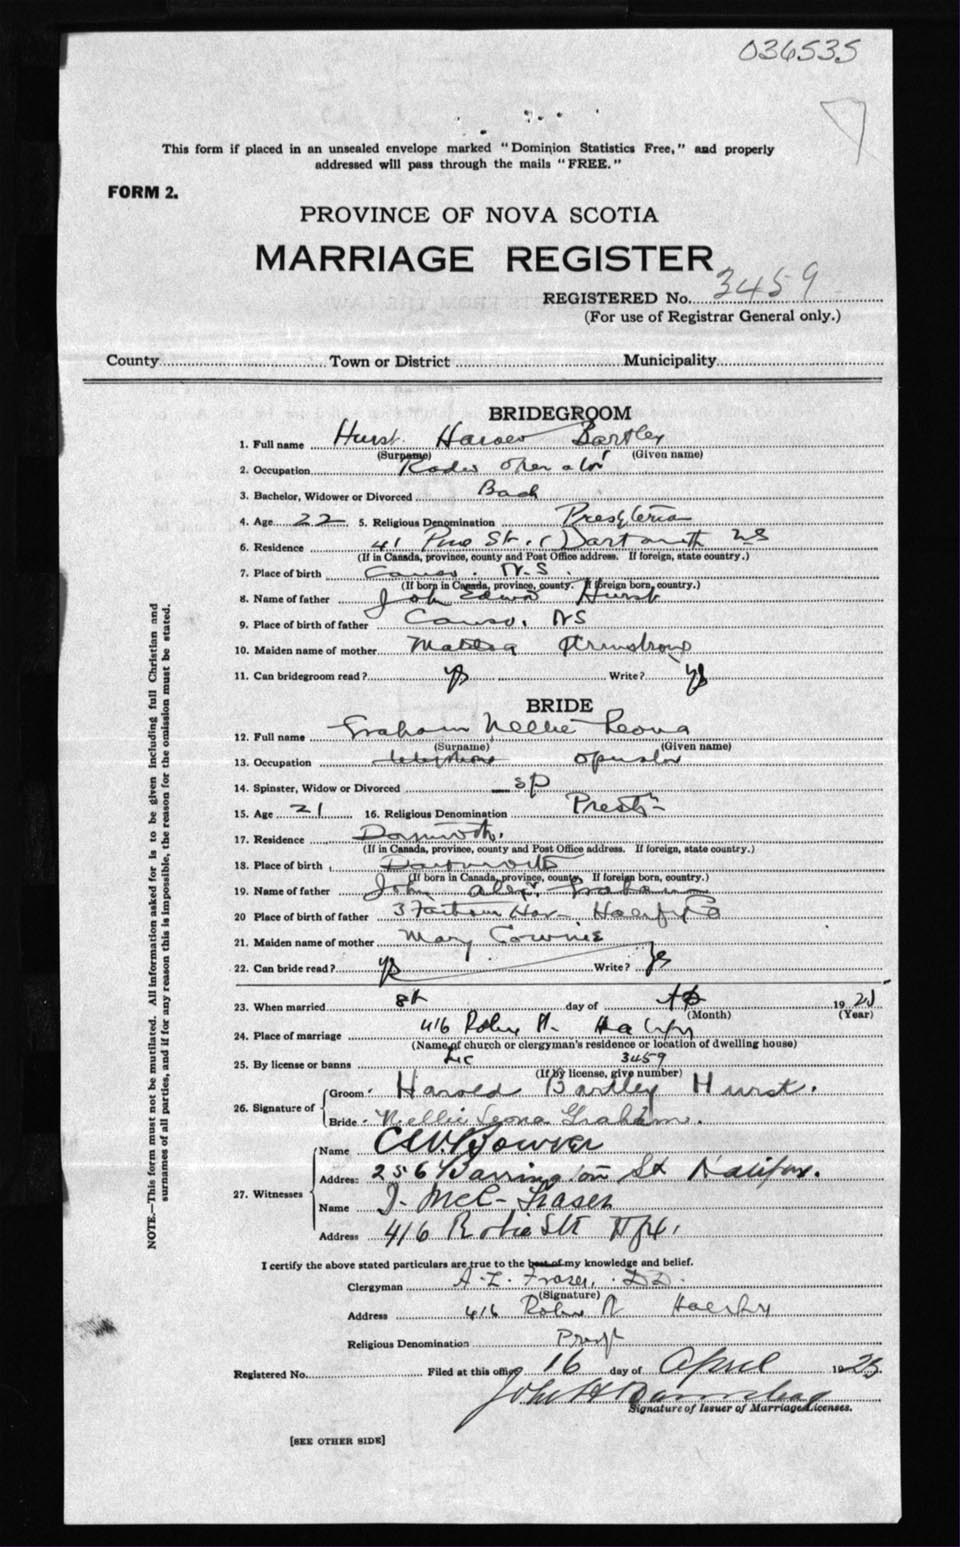 036535
This form if placed in an unsealed envelope marked "Dominion Statistics Free," and properly
addressed will pass through the mails "FREE."
FORM 2.
PROVINCE OF NOVA SCOTIA
MARRIAGE REGISTER
REGISTERED No. 3459
(For use of Registrar General only.)
County Town or District Municipality
BRIDEGROOM
1. Full name Hurst Harold Bartley
(Surname) (Given name)
2. Occupation Radio Operator
3. Bachelor, Widower or Divorced Bach
4. Age 22 5. Religious Denomination Presbyterian
6. Residence 41 Pine St. Dartmouth NS
(If in Canada, province, county and Post Office address. If foreign, state country.)
7. Place of birth Canso. N.S.
(If born in Canada, province, county. If foreign born, country.)
8. Name of father John Edwin Hurst
9. Place of birth of father Canso, NS
10. Maiden name of mother Matilda Armstrong
11. Can bridegroom read? yes Write? yes
BRIDE
12. Full name Graham Nellie Leona
(Surname) (Given name)
13. Occupation telephone operator
14. Spinster, Widow or Divorced sp
15. Age 21 16. Religious Denomination Presbn
17. Residence Dartmouth.
(If in Canada, province, county and Post Office address. If foreign, state country.)
18. Place of birth Dartmouth
(If born in Canada, province, county. If foreign born, country.)
19. Name of father John Alex. Graham
20 Place of birth of father 3 Fathom Har- Halifax Co
21. Maiden name of mother Mary
22. Can bride read? yes Write? yes
23. When married 8th day of 19
(Month) (Year)
24. Place of marriage 416 Robie St. Halifax
(Name of church or clergyman's residence or location of dwelling house)
25. By license or banns Lic 3459
(If by license, give number)
26. Signature of
Groom Harold Bartley Hurst.
Bride Nellie Leona Graham.
27. Witnesses
Name
Address 256 Barrington St Halifax.
Name J. McC- Fraser
Address 416 Robie St Hfx.
I certify the above stated particulars are true to the best of my knowledge and belief.
Clergyman A. L. Fraser, DD.
(Signature)
Address 416 Robie St Halifax
Religious Denomination Presbt
Registered No. Filed at this office 16 day of April 1923
John H
Signature of Issuer of Marriage Licenses.
[SEE OTHER SIDE]
NOTE.—This form must not be mutilated. All information asked for is to be given including full Christian and
surnames of all parties, and if for any reason this is impossible, the reason for the omission must be stated.